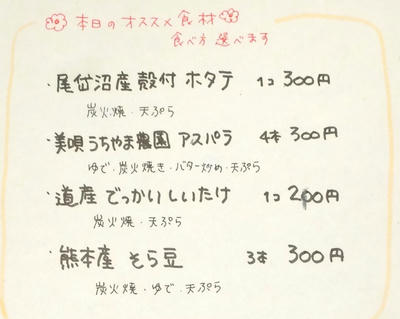 本日のオススメ食材
食べ方 選べます
・尾岱沼産 殻付 ホタテ 1コ 300円
炭火焼・天ぷら
・美唄うちやま農園 アスパラ 4本 300円
ゆで・炭火焼き・バター炒め・天ぷら
・道産 でっかいしいたけ 1コ 200円
炭火焼・天ぷら
・熊本産 そら豆 3本 300円
炭火焼・ゆで・天ぷら